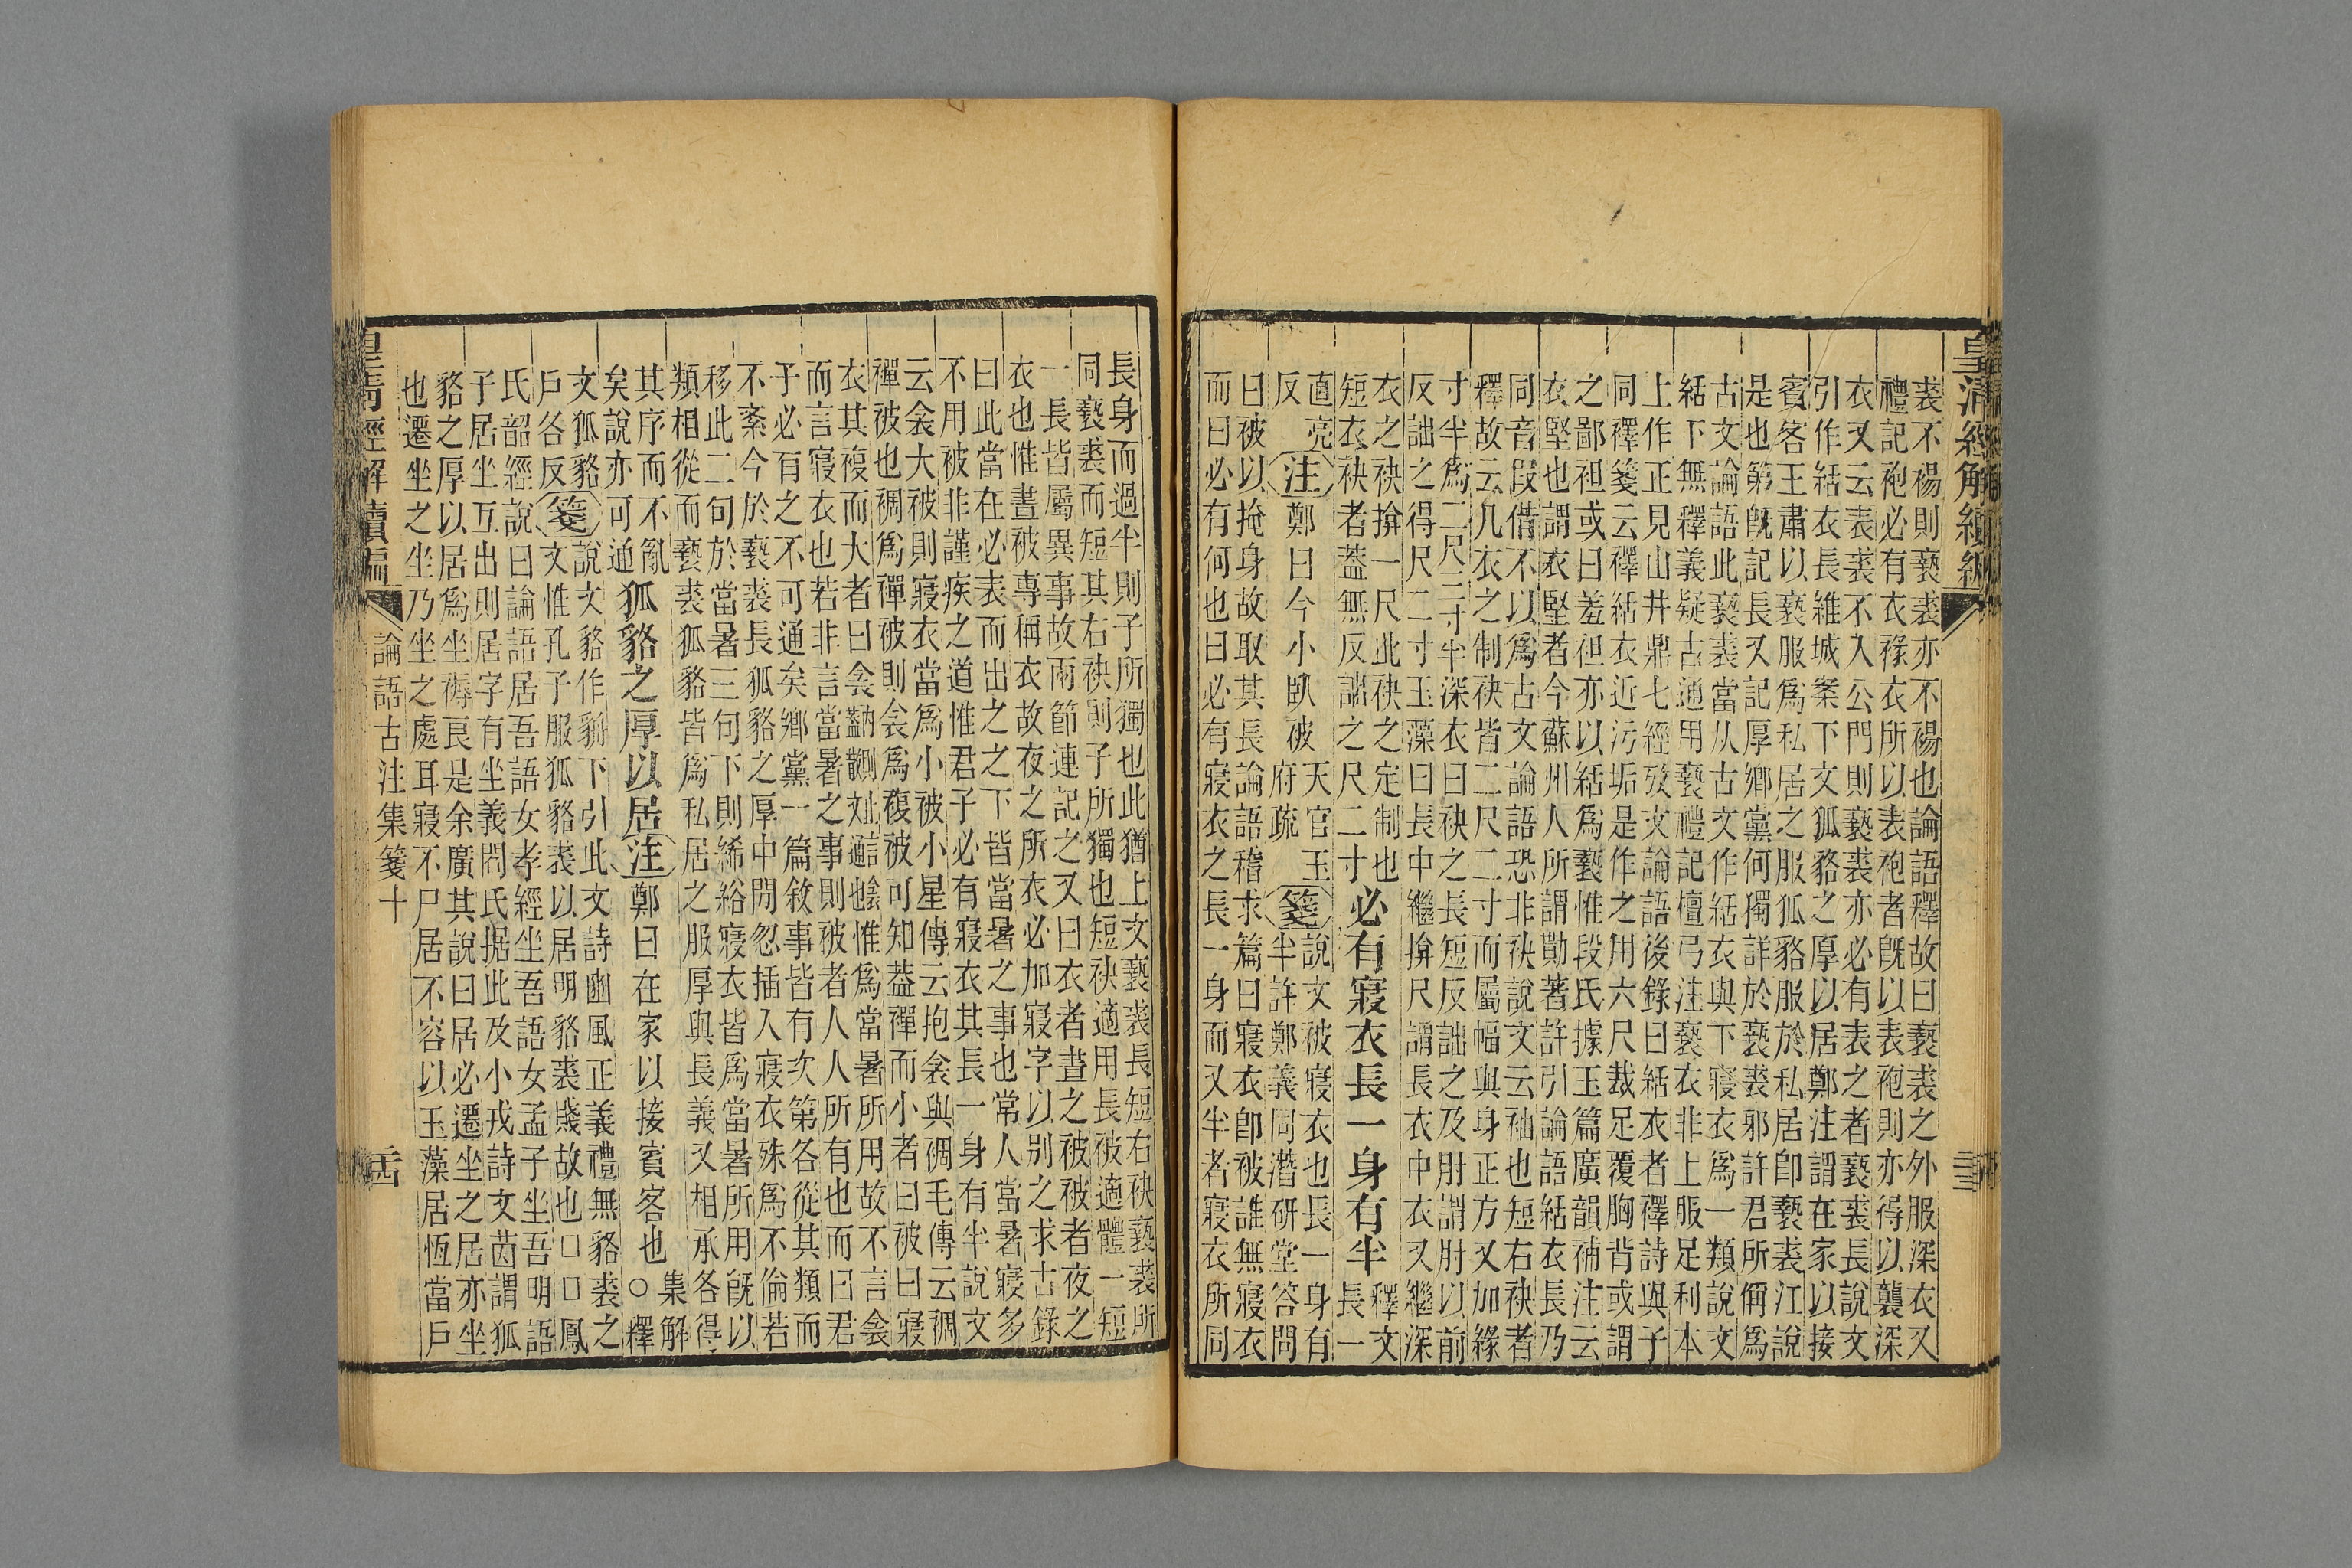 皇清經解續編
裘不裼則褻裘亦不裼也論語釋故曰褻裘之外服深衣又
禮記袍必有衣褖衣所以表袍者旣以表袍則亦得以襲深
衣又云表裘不入公門則褻裘亦必有表之者褻裘長說文
引作絬衣長維城案下文狐貉之厚以居鄭注謂在家以接
賓客王肅以褻服爲私居之服狐貉服於私居卽褻裘江說
是也第旣記長又記厚鄉黨何獨詳於褻裘邪許君所偁爲
古文論語此褻裘當从古文作絬衣與下寢衣爲一類說文
絬下無釋義疑古通用褻禮記檀弓注褻衣非上服足利本
上作正見山井鼎七經攷文論語後錄曰絬衣者襗詩與子
同襗箋云襗絬衣近污垢是作之用六尺裁足覆胸背或謂
之鄙袒或曰羞袒亦以絬爲褻惟段氏據玉篇廣韻補注云
衣堅也謂衣堅者今蘇州人所謂勩著許引論語絬衣長乃
同音叚借不以爲古文論語恐非袂說文云袖也短右袂者
釋故云几衣之制袂皆二尺二寸而屬幅與身正方又加緣
寸半爲二尺三寸半深衣曰袂之長短反詘之及肘謂肘以前
反詘之得尺二寸玉藻曰長中繼揜尺謂長衣中衣又繼深
衣之袂揜一尺此袂之定制也
短衣袂者蓋無反詘之尺二寸
必有寢衣長一身有半
釋文
長一
直亮
反
注
鄭曰今小臥被
天官玉
府疏
箋
說文被寢衣也長一身有
半許鄭義同潛研堂答問
曰被以掩身故取其長論語稽求篇曰寢衣卽被誰無寢衣
而曰必有何也曰必有寢衣之長一身而又半者寢衣所同
長身而過半則子所獨也此猶上文褻裘長短右袂褻裘所
同褻裘而短其右袂則子所獨也短袂適用長被適體一短
一長皆屬異事故兩節連記之又曰衣者晝之被被者夜之
衣也惟晝被專稱衣故夜之所衣必加寢字以別之求古錄
曰此當在必表而出之之下皆當暑之事也常人當暑寢多
不用被非謹疾之道惟君子必有寢衣其長一身有半說文
云衾大被則寢衣當爲小被小星傳云抱衾與裯毛傳云裯
襌被也裯爲襌被則衾爲複被可知蓋襌而小者曰被曰寢
衣其複而大者曰衾惟爲當暑所用故不言衾
而言寢衣也若非言當暑之事則被者人人所有也而曰君
子必有之不可通矣鄉黨一篇敘事皆有次第各從其類而
不紊今於褻裘長狐貉之厚中閒忽插入寢衣殊爲不倫若
移此二句於當暑三句下則絺綌寢衣皆爲當暑所用旣以
類相從而褻裘狐貉皆爲私居之服厚與長義又相承各得
其序而不亂
矣說亦可通
狐貉之厚以居
注
鄭曰在家以接賓客也○
集解
釋
文狐貉
戶各反
箋
說文貉作貈下引此文詩豳風正義禮無貉裘之
文惟孔子服狐貉裘以居明貉裘賤故也□□鳳
氏韶經說曰論語居吾語女孝經坐吾語女孟子坐吾明語
子居坐互出則居字有坐義閻氏据此及小戎詩文茵謂狐
貉之厚以居爲坐褥良是余廣其說曰居必遷坐之居亦坐
也遷坐之坐乃坐之處耳寢不尸居不容以玉藻居恆當戶
皇淸經解續編
論語古注集箋十